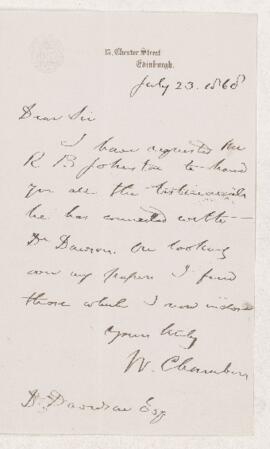 13, Chester Street
Edinburgh.
July 23. 1868
Dear Sir
I have requested Mr
R. B Johnston to hand
you all the testimonials
he has connected with
Dr Dawson. On looking
over my papers I find
those which I now inclose
Yours truly
W. Chambers
D. Davidson Esq